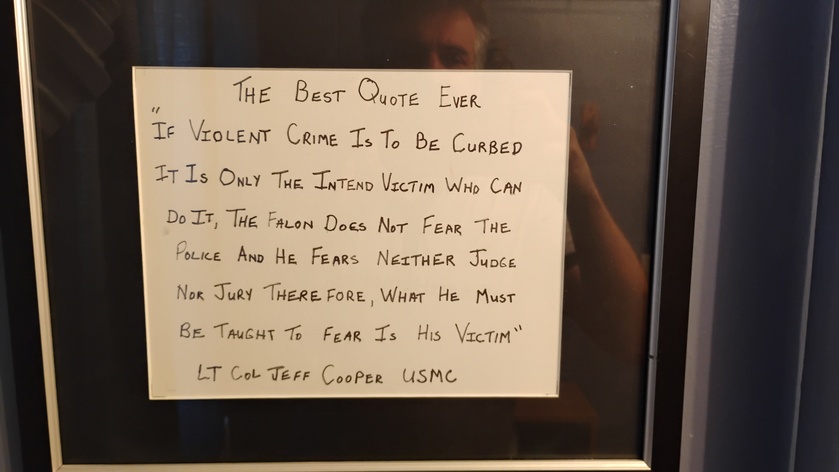 THE BEST QUOTE EVER
"IF VIOLENT CRIME IS TO BE CURBED
IT IS ONLY THE INTEND VICTIM WHO CAN
DO IT, THE FALON DOES NOT FEAR THE
POLICE AND HE FEARS NEITHER JUDGE
NOR JURY THEREFORE, WHAT HE MUST
BE TAUGHT TO FEAR IS HIS VICTIM"
LT COL JEFF COOPER USMC